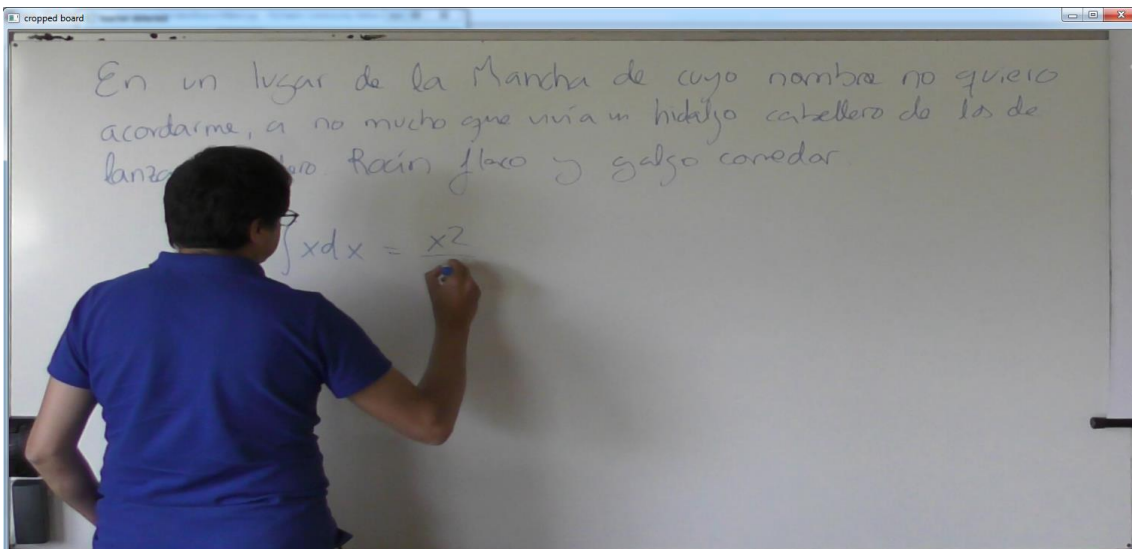 cropped board
En un lugar de la Mancha de cuyo nombre no quiero
acordarme, a no mucho que vivía un hidalgo caballero de los de
lanza Rocín flaco y galgo corredor
∫ x d x = x2